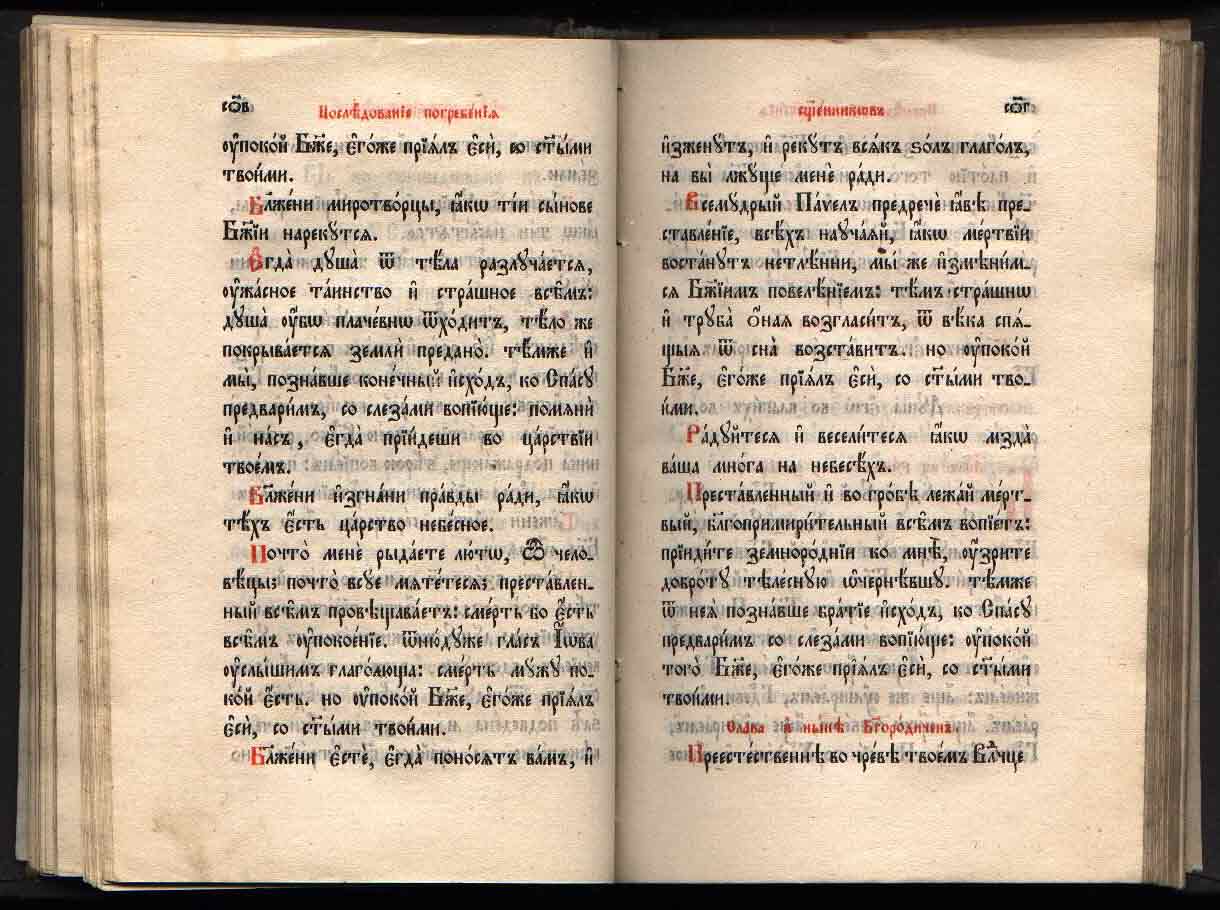 со҃в
Послѣдованїе погребенїѧ
ѹ҆поко́й Бж҃е, є҆го́же прїѧ́лъ є҆сѝ, со ст҃ы́ми
твои́ми.
Бл҃же́ни миротво́рцы, ꙗ҆́кѡ ті́и сы́нове
Бж҃їи нареку́тсѧ.
Є҆гда̀ дꙋша̀ ѿ тѣ́ла разлꙋча́етсѧ,
ѹ҆жа́сное та́инство и҆ стра́шное всѣ̑мъ:
дꙋша̀ ѹ҆́бѡ плаче́внѡ ѿхо́дитъ, тѣ́ло же
покрыва́етсѧ землѝ предано̀. тѣ́мже и҆
мы̀, позна́вше коне́чный и҆схо́дъ, ко Спа́сꙋ
предвари́мъ, со слеза́ми вопїю́ще: помѧнѝ
и҆ на́съ, є҆гда̀ прїи́деши во ца́рствїи
твое́мъ.
Бл҃же́ни и҆згна́ни пра́вды ра́ди, ꙗ҆́кѡ
тѣ́хъ є҆́сть ца́рство небе́сное.
Почто̀ менѐ рыда́ете лю́тѡ, ѽ чело-
вѣ́цы; почто̀ всꙋе мѧте́тесѧ; преста́влен-
ный всѣ̑мъ провѣщава́етъ: сме́рть бо є҆́сть
всѣ̑мъ ѹ҆покое́нїе. ѿню́дꙋже гла́съ І҆́ѡва
ѹ҆слы́шимъ глаго́люща: сме́рть мꙋ́жꙋ по-
ко́й є҆́сть. но ѹ҆поко́й Бж҃е, є҆го́же прїѧ́лъ
є҆сѝ, со ст҃ы́ми твои́ми.
Бл҃же́ни є҆стѐ, є҆гда̀ поно́сѧтъ ва́мъ, и҆
сщ҃е́нникѡвъ
со҃г
и҆зженꙋ́тъ, и҆ рекꙋ́тъ всѧ́къ ѕо́лъ глаго́лъ,
на вы̀ лжꙋ́ще менѐ ра́ди.
Всемꙋ́дрый Па́ѵелъ предречѐ ꙗ҆́вѣ пре-
ставле́нїе, всѣ́хъ наꙋча́ѧй, ꙗ҆́кѡ ме́ртвїи
воста́нꙋтъ нетлѣ́нни, мы́ же и҆змѣни́м-
сѧ Бж҃їимъ повелѣ́нїемъ: тѣ́мъ стра́шнѡ
и҆ трꙋба̀ ѻ҆́наѧ возгласи́тъ, ѿ вѣ́ка спѧ́-
щыѧ ѿ сна̀ возста́витъ. но ѹ҆поко́й
Бж҃е, є҆го́же прїѧ́лъ є҆сѝ, со ст҃ы́ми тво-
и́ми.
Ра́дꙋйтесѧ и҆ весели́тесѧ ꙗ҆́кѡ мзда̀
ва́ша мно́га на небесѣ́хъ.
Преста́вленный и҆ во гро́бѣ лежа́й ме́рт-
вый, бл҃гопримири́тельный всѣ̑мъ вопїе́тъ:
прїиди́те земноро́днїи ко мнѣ̀. ѹ҆зри́те
добро́тꙋ тѣле́снꙋю ѡ҆чернѣ́вшꙋ. тѣ́мже
ѿ неѧ̀ позна́вше бра́тїе и҆схо́дъ, ко Спа́сꙋ
предвари́мъ со слеза́ми вопїю́ще: ѹ҆поко́й
того̀ Бж҃е, є҆го́же прїѧ́лъ є҆сѝ, со ст҃ы́ми
твои́ми.
Слава и҆ ны́нѣ Бг҃ородиченъ.
Преесте́ственнѣ во чре́вѣ твое́мъ Влⷣчце